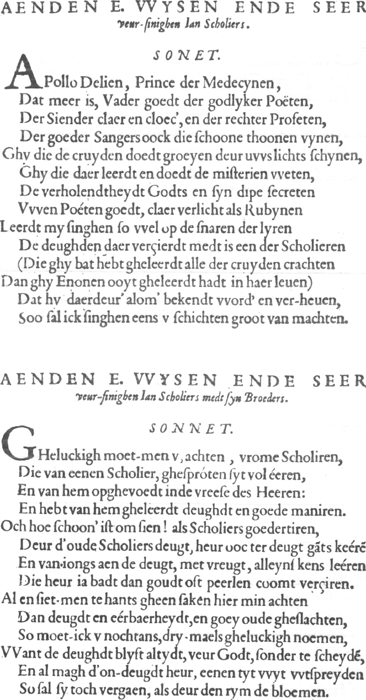 AENDEN E. VVYSEN ENDE SEER
veur-sinighen Ian Scholiers.
SONET.
APollo Delien, Prince der Medecynen,
Dat meer is, Vader goedt der godlyker Poëten,
Der Siender claer en cloec', en der rechter Profeten,
Der goeder Sangers oock die schoone thoonen vynen,
Ghy die de cruyden doedt groeyen deur uvvs lichts schynen,
Ghy die daer leerdt en doedt de misterien vveten,
De verholendtheydt Godts en syn dipe secreten
Vvven Poéten goedt, claer verlicht als Rubynen
Leerdt my singhen so vvel op de snaren der lyren
De deughden daer verçierdt medt is een der Scholieren
(Die ghy bat hebt gheleerdt alle der cruyden crachten
Dan ghy Enonen ooyt gheleerdt hadt in haer leuen)
Dat hy daerdeur' alom' bekendt vvord' en ver-heuen,
Soo sal ick singhen eens v schichten groot van machten.
AENDEN E. VVYSEN ENDE SEER
veur-sinighen Ian Scholiers medt syn Broeders.
SONNET.
GHeluckigh moet-men v, achten, vrome Scholiren,
Die van eenen Scholier, ghespróten syt vol éeren,
En van hem opghevoedt inde vreese des Heeren:
En hebt van hem gheleerdt deughdt en goede maniren.
Och hoe schoon' ist om sien! als Scholiers goedertiren,
Deur d'oude Scholiers deugt, heur ooc ter deugt gãts keérẽ
En van-iongs aen de deugt, met vreugt, alleyns kens leéren
Die heur ia badt dan goudt oft peerlen coomt verçiren.
Al en siet-men te hants gheen saken hier min achten
Dan deugdt en eérbaerheydt, en goey oude gheslachten,
So moet-ick v nochtans, dry-maels gheluckigh noemen,
VVant de deughdt blyft altydt, veur Godt, sonder te scheydẽ,
En al magh d'on-deugdt heur, eenen tyt vvyt vvtspreyden
So sal sy toch vergaen, als deur den rym de bloemen.